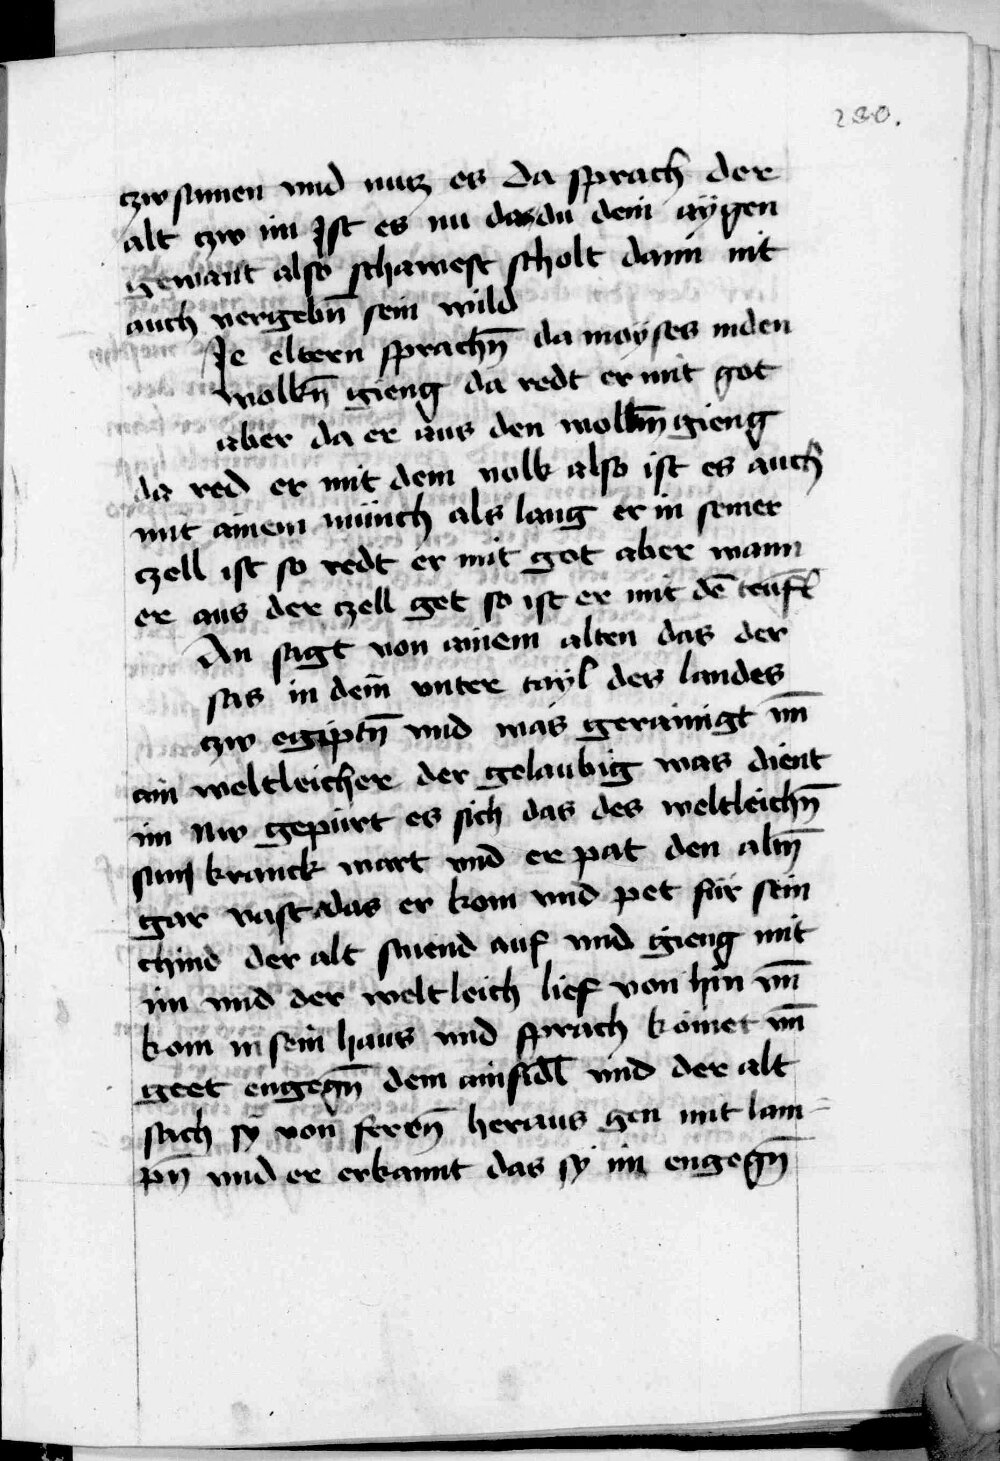 230.
czw samen vnd nutz es da sprach der
alt czw im Ist es nu das du dein aÿgen
gewant also schawest scholt dann nit
auch vergebn̄ sein wild
Je eltern sprachn̄ da moÿses in den
wolkn̄ gieng da redt er mit got
aber da er aus den wolkn̄ gieng
da red er mit dem volk also ist es auch
mit ainem münch als lang er in seiner
czell ist so redt er mit got aber wann
er aus der czell get so ist er mit dē teufl
An sagt von ainem alten das der
sas in dem̄ vnter tayl des landes
czw egiptn̄ vnd was gerainigt vn̄
ain weltleicher der gelaubig was dient
im Nw gepürt es sich das des weltleichn̄
sun kranck wart vnd er pat den altn̄
gar vast das er kom vnd pet für sein
chind der alt stuend auf vnd gieng mit
im vnd der weltleich lief von hin vn̄
kom in sein haus vnd sprach kömet vn̄
geet engegn̄ dem ainsidl vnd der alt
sach sÿ von ferrēn heraus gen mit lam-
pn̄ vnd er erkannt das sÿ im engegn̄